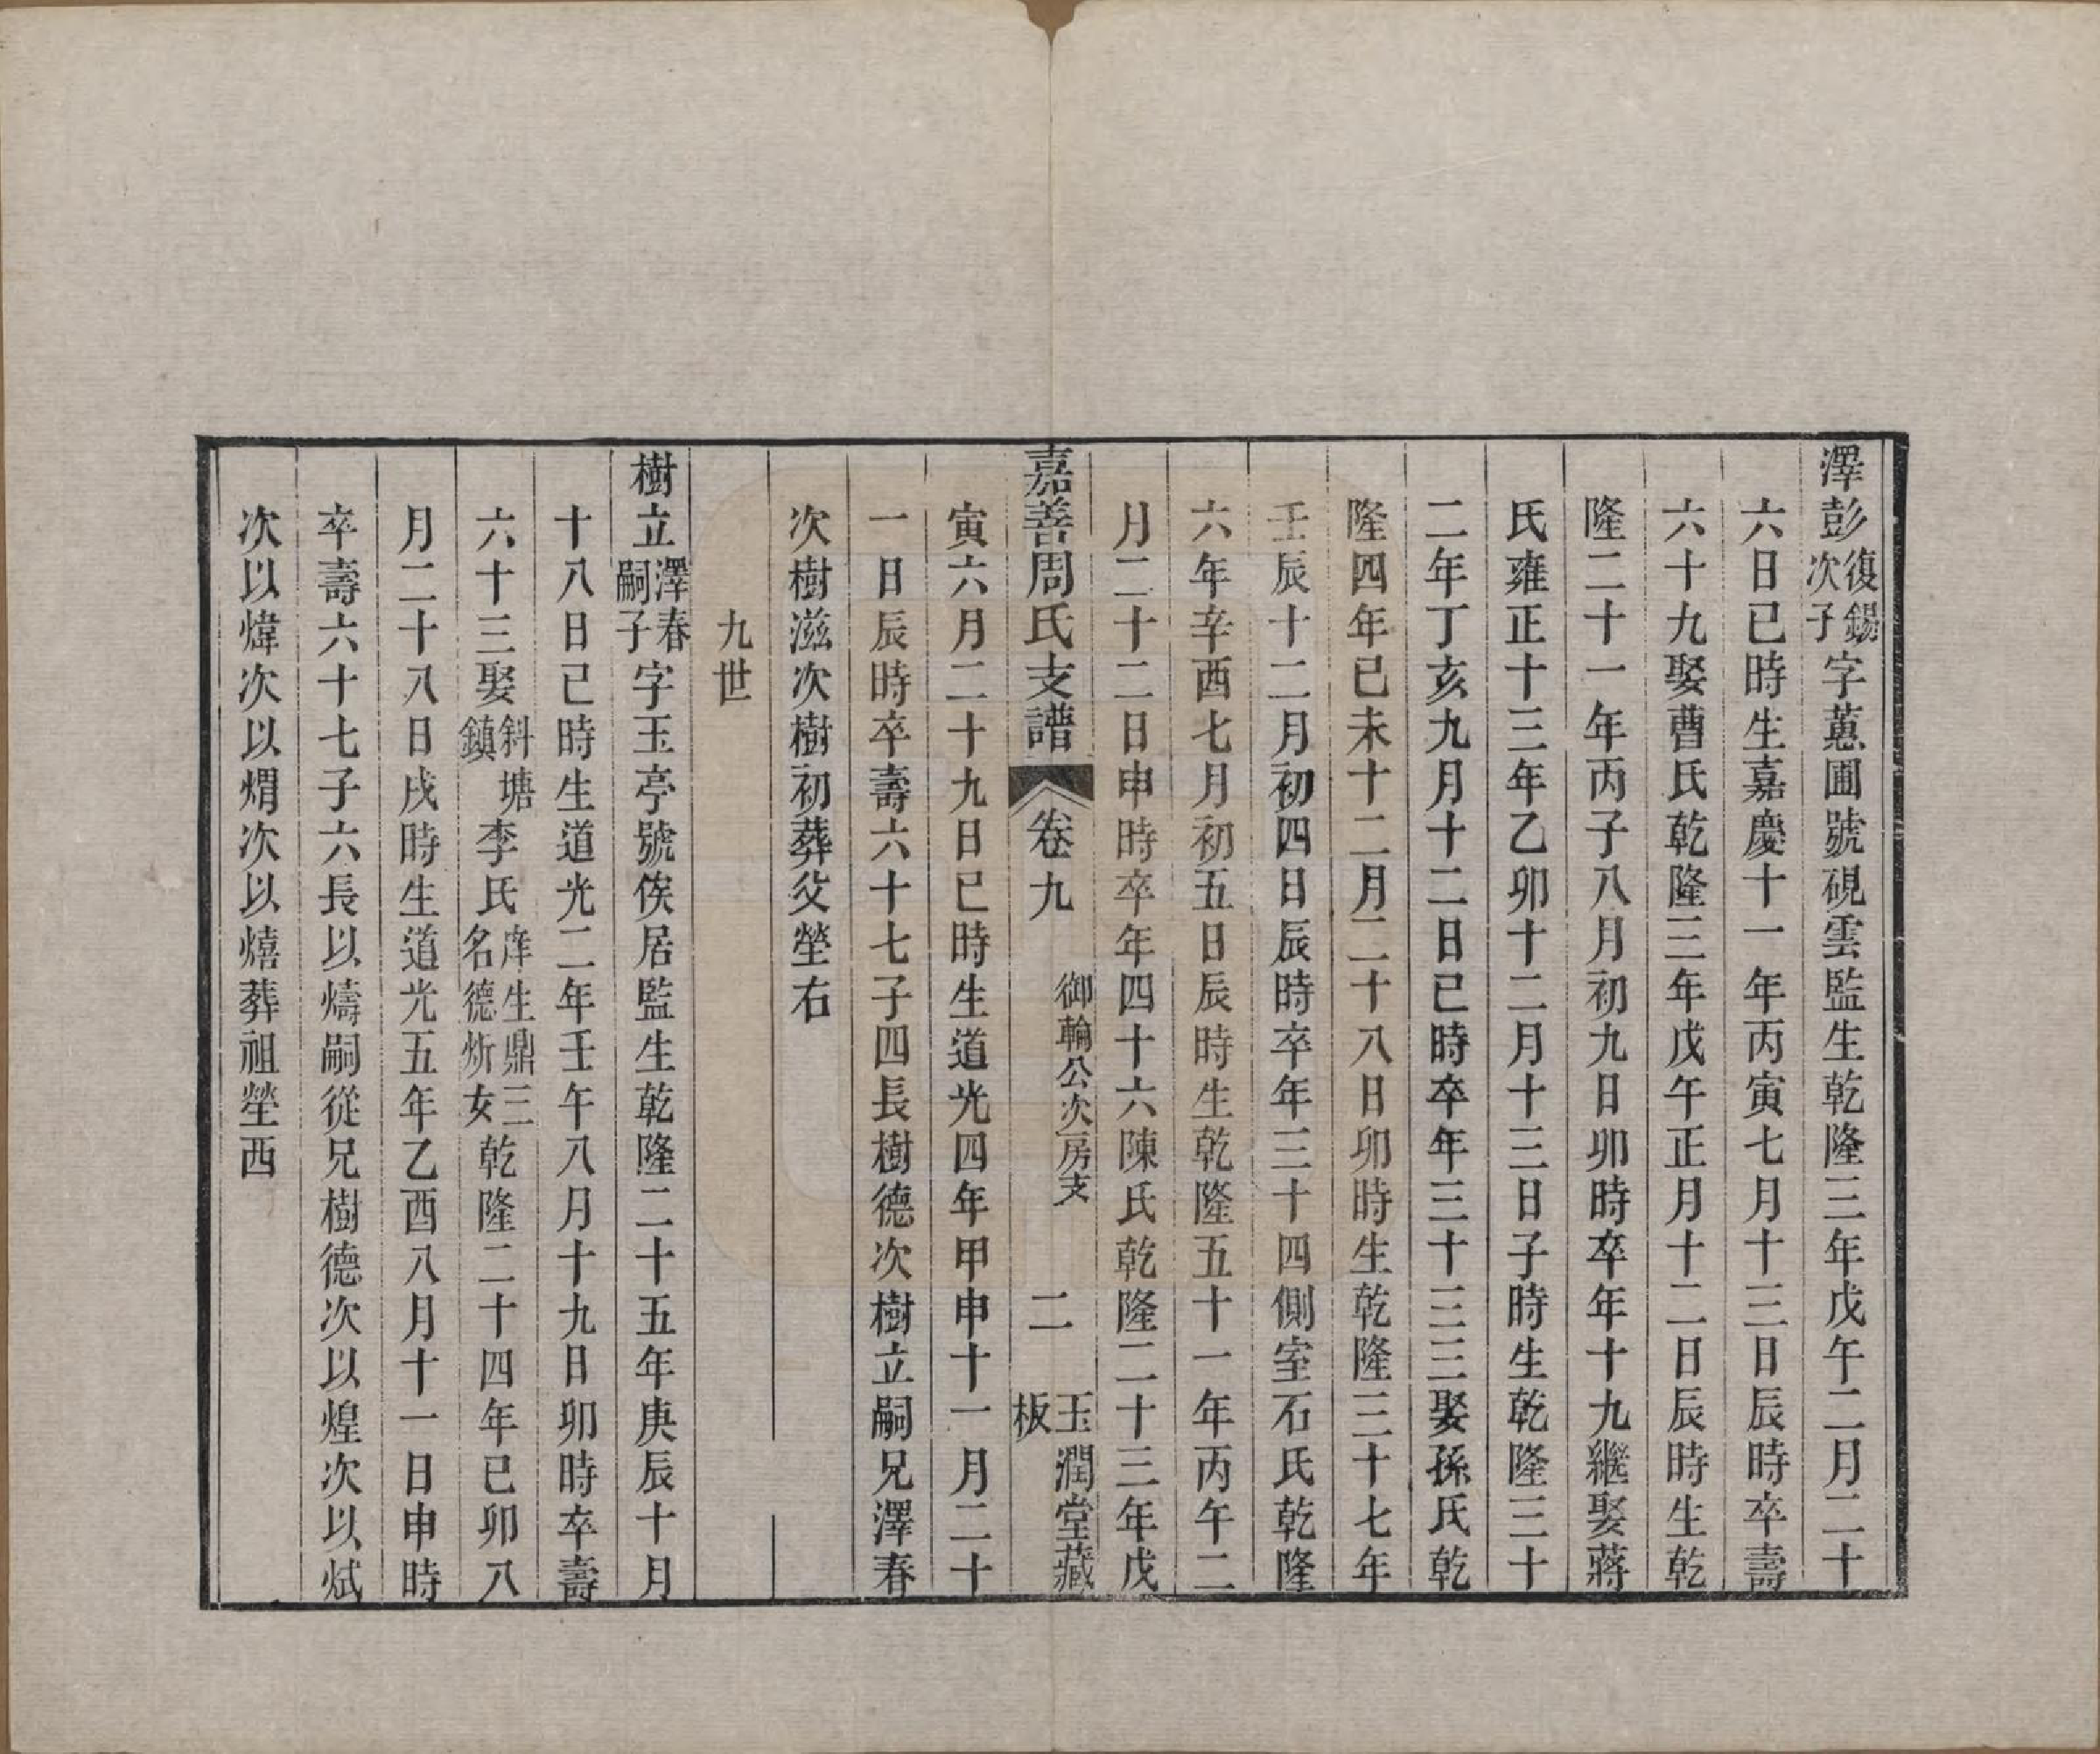 澤彭復錫次子字蕙圃號硯雲監生乾隆三年戊午二月二十
六日巳時生嘉慶十一年丙寅七月十三日辰時卒壽
六十九娶曹氏乾隆三年戊午正月十二日辰時生乾
隆二十一年丙子八月初九日卯時卒年十九繼娶蔣
氏雍正十三年乙卯十二月十三日子時生乾隆三十
二年丁亥九月十二日巳時卒年三十三三娶孫氏乾
隆四年己未十二月二十八日卯時生乾隆三十七年
壬辰十二月初四日辰時卒年三十四側室石氏乾隆
六年辛酉七月初五日辰時生乾隆五十一年丙午二
月二十二日申時卒年四十六陳氏乾隆二十三年戊
嘉善周氏支譜
卷九
御輪公次房支
二
玉潤堂藏板
寅六月二十九日巳時生道光四年甲申十一月二十
一日辰時卒壽六十七子四長樹德次樹立嗣兄澤春
次樹滋次樹初葬父塋右
九世
樹立澤春嗣子字玉亭號俟居監生乾隆二十五年庚辰十月
十八日巳時生道光二年壬午八月十九日卯時卒壽
六十三娶斜塘鎮李氏庠生鼎三名德炘女乾隆二十四年己卯八
月二十八日戌時生道光五年乙酉八月十一日申時
卒壽六十七子六長以燽嗣從兄樹德次以煌次以烒
次以煒次以煟次以熺葬祖塋西